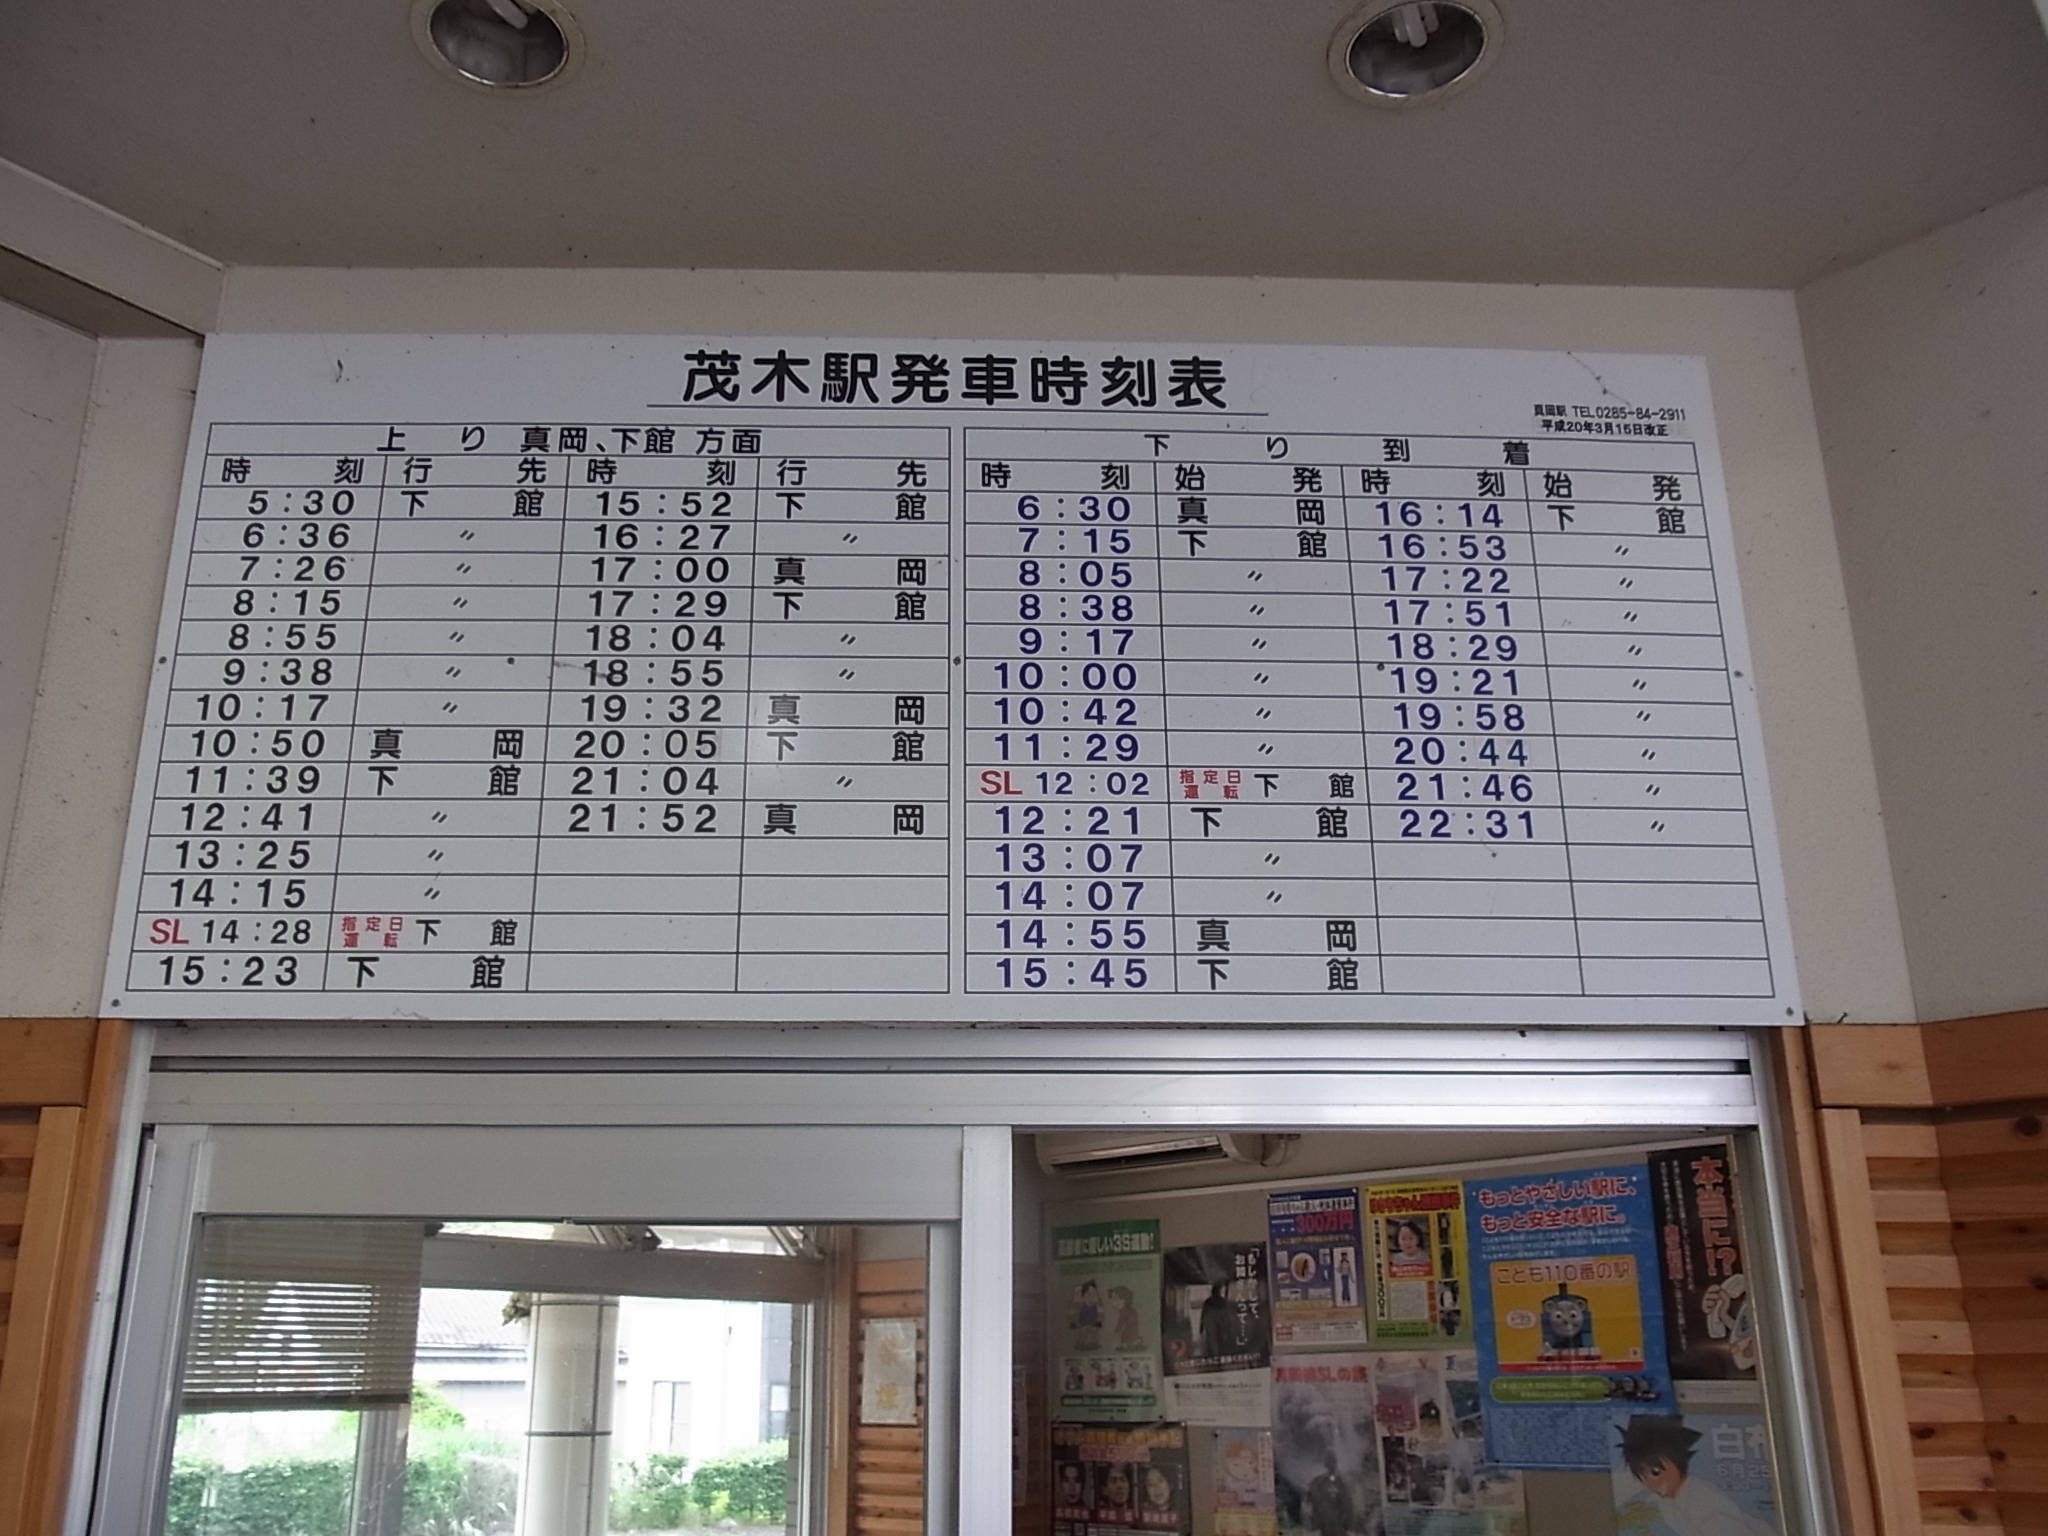 茂木駅発車時刻表
真岡駅 TEL0285-84-2911
平成20年3月15日改正
上り 真岡、下館 方面
時刻 行先 時刻 行先
5:30 下館 15:52 下館
6:36 〃 16:27 〃
7:26 〃 17:00 真岡
8:15 〃 17:29 下館
8:55 〃 18:04 〃
9:38 〃 18:55 〃
10:17 〃 19:32 真岡
10:50 真岡 20:05 下館
11:39 下館 21:04 〃
12:41 〃 21:52 真岡
13:25 〃
14:15 〃
SL 14:28 指定日運転 下館
15:23 下館
下り到着
時刻 始発 時刻 始発
6:30 真岡 16:14 下館
7:15 下館 16:53 〃
8:05 〃 17:22 〃
8:38 〃 17:51 〃
9:17 〃 18:29 〃
10:00 〃 19:21 〃
10:42 〃 19:58 〃
11:29 〃 20:44 〃
SL 12:02 指定日運転 下館 21:46 〃
12:21 下館 22:31 〃
13:07 〃
14:07 〃
14:55 真岡
15:45 下館
300万円
もっとやさしい駅に、
もっと安全な駅に。
こども110番の駅
本当に?!
「もしかして、
お賽
真岡線SLの旅